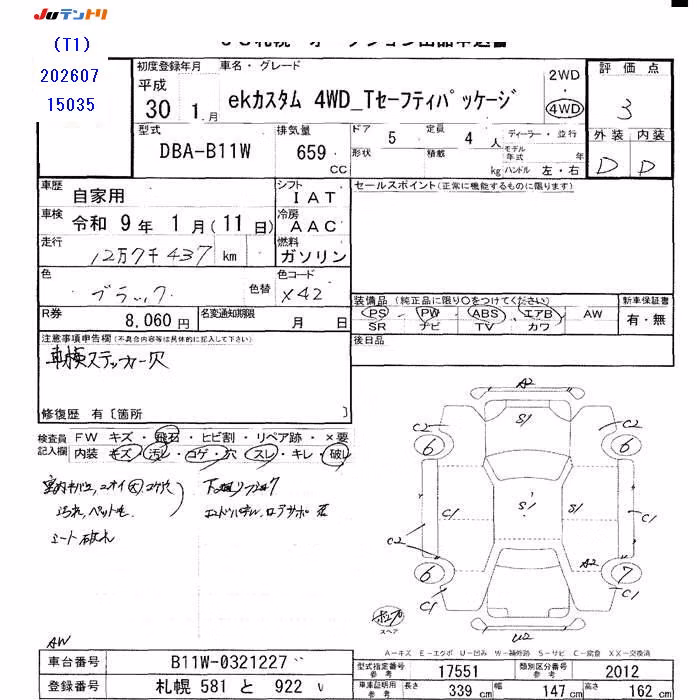 JUテントリ
(T1)
202607
15035
初度登録年月 車名・グレード
平成
30 1月
ekカスタム 4WD_Tセーフティパッケージ
2WD
・
4WD
評価点
3
外装 内装
D D
型式 排気量 ドア 定員 ディーラー・並行
DBA-B11W 659 CC 5 4人
形状 積載 kg モデル年式 年
ハンドル 左・右
車歴 自家用
シフト IAT
車検 令和 9年 1月(11日)
冷房 AAC
走行 12万7千437 km
燃料 ガソリン
セールスポイント(正常に機能するものに限ります)
色 ブラック 色替
色コード X42
装備品(純正品に限り〇をつけてください) 新車保証書
PS・PW・ABS・エアB・AW
SR ナビ TV カワ
有・無
R券 8,060円 名変通知期限 月 日
後日品
注意事項申告欄(不具合内容等は具体的に記入して下さい)
車検ステッカー穴
修復歴 有〔箇所 〕
検査員記入欄
FW キズ・飛石・ヒビ割・リペア跡・×要
内装 キズ・汚れ・コゲ・穴・スレ・キレ・破れ
室内キバミ,ニオイ(大)コゲ穴
汚れ,ペット毛
シート破れ
A2
S1
C2 C2
6 6
C1 S1 S1 C1
C2
A2
6 7
C1 C1
スペア
U2
A-キズ E-エクボ U-凹み W-補修跡 S-サビ C-腐食 XX-交換済
AW
車台番号 B11W-0321227
登録番号 札幌 581 と 922
型式指定番号 参考 17551 類別区分番号 参考 2012
車庫証明用 参考 長さ 339 cm 幅 147 cm 高さ 162 cm